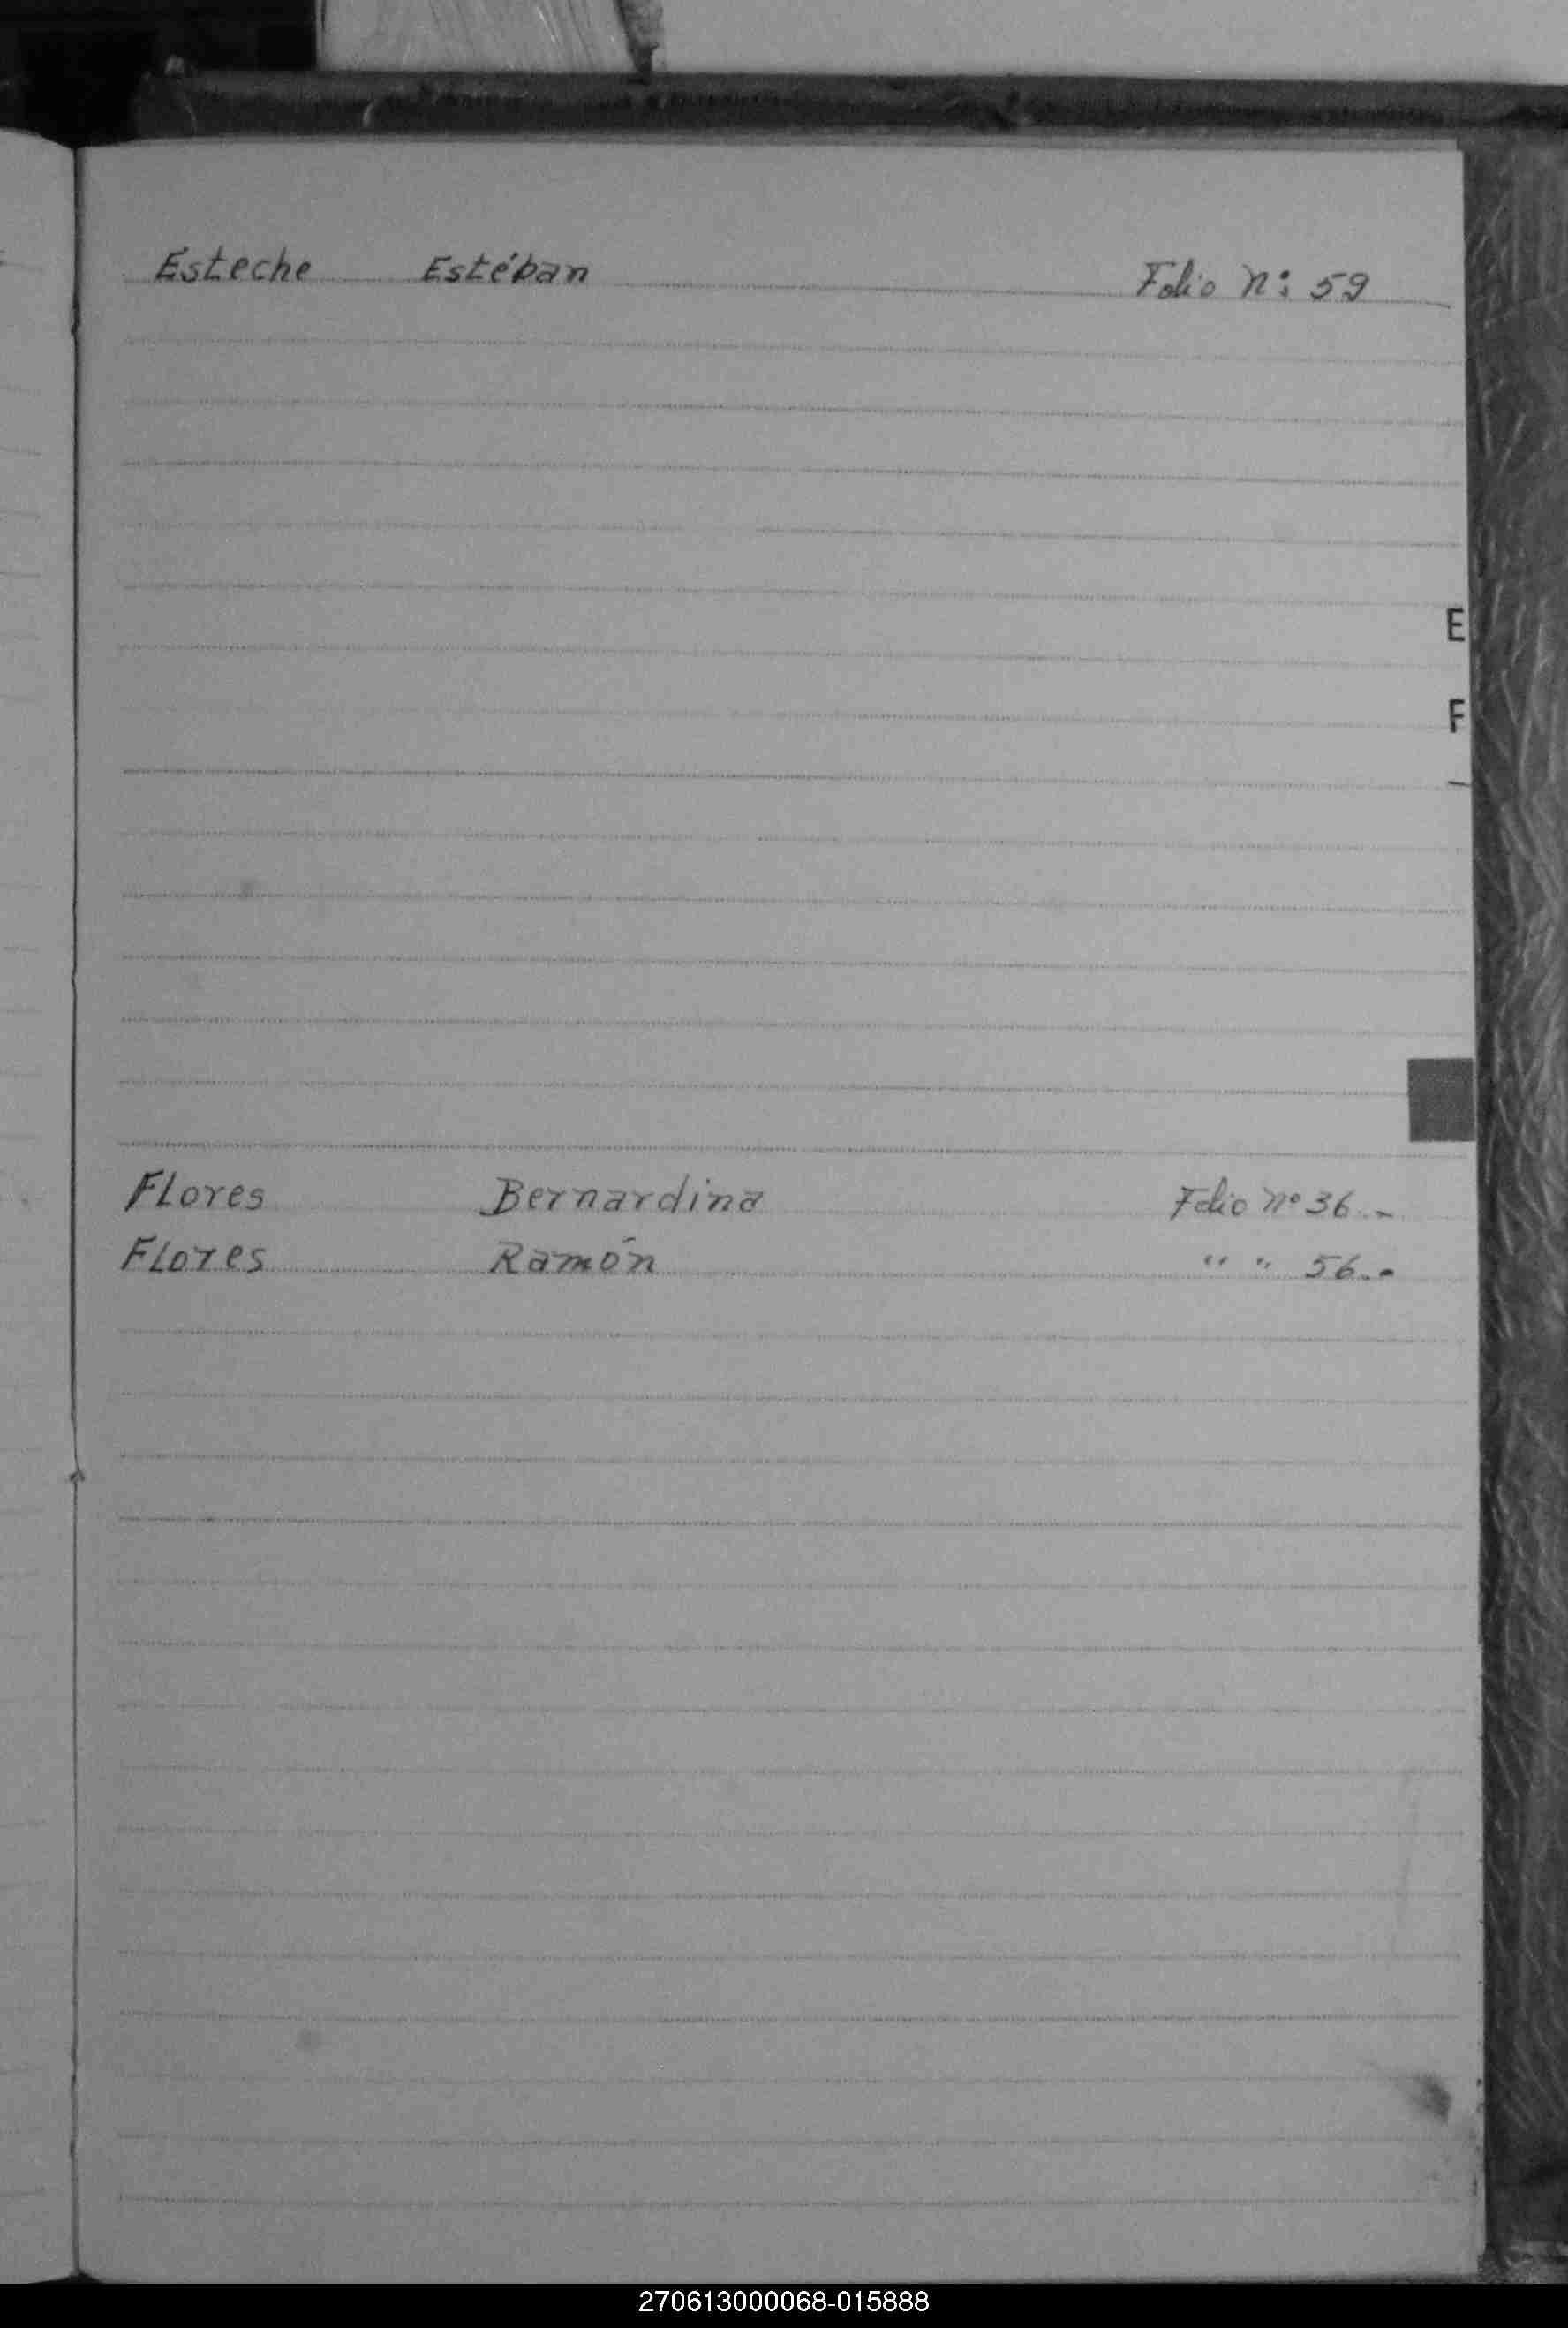 Esteche Estéban Folio n: 59
E
F
Flores Bernardina Folio nº 36.-
Flores Ramón " " 56.-
270613000068-015888